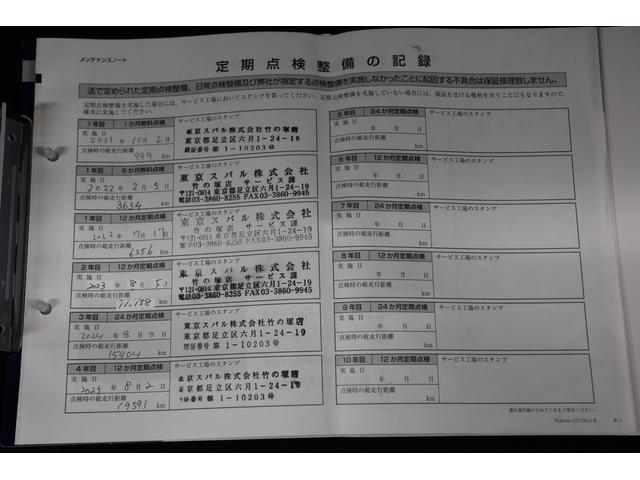 メンテナンスノート
定期点検整備の記録
法で定められた定期点検整備、日常点検整備及び弊社が指定する点検整備を実施しなかったことに起因する不具合は保証修理致しません。
定期点検整備を実施した場合には、サービス工場においてスタンプを貰ってください。定期点検整備を実施していない場合には、保証を受ける権利を失うことにもなりますので、
確実に実施してください。
1年目 1か月無料点検 サービス工場のスタンプ
実施日
2021年10月2日
点検時の総走行距離
999 km
東京スバル株式会社竹の塚店
東京都足立区六月1-24-19
認証番号 第1-10203号
1年目 6か月無料点検 サービス工場のスタンプ
実施日
2022年2月5日
点検時の総走行距離
3634 km
東京スバル株式会社
竹の塚店 サービス課
〒121-0814 東京都足立区六月1-24-19
TEL03-3860-8255 FAX03-3860-9945
1年目 12か月定期点検 サービス工場のスタンプ
実施日
2022年7月17日
点検時の総走行距離
6356 km
東京スバル株式会社
竹の塚店 サービス課
〒121-0814 東京都足立区六月1-24-19
TEL03-3860-8255 FAX03-3860-9945
2年目 12か月定期点検 サービス工場のスタンプ
実施日
2023年8月5日
点検時の総走行距離
11,158 km
東京スバル株式会社
竹の塚店 サービス課
〒121-0814 東京都足立区六月1-24-19
TEL03-3860-8255 FAX03-3860-9945
3年目 24か月定期点検 サービス工場のスタンプ
実施日
2024年8月3日
点検時の総走行距離
15904 km
東京スバル株式会社竹の塚店
東京都足立区六月1-24-19
第1-10203号
4年目 12か月定期点検 サービス工場のスタンプ
実施日
2025年8月2日
点検時の総走行距離
19591 km
東京スバル株式会社竹の塚店
東京都足立区六月1-24-19
認証番号 第1-10203号
5年目 24か月定期点検 サービス工場のスタンプ
実施日
年 月 日
点検時の総走行距離
km
6年目 12か月定期点検 サービス工場のスタンプ
実施日
年 月 日
点検時の総走行距離
km
7年目 24か月定期点検 サービス工場のスタンプ
実施日
年 月 日
点検時の総走行距離
km
8年目 12か月定期点検 サービス工場のスタンプ
実施日
年 月 日
点検時の総走行距離
km
9年目 24か月定期点検 サービス工場のスタンプ
実施日
年 月 日
点検時の総走行距離
km
10年目 12か月定期点検 サービス工場のスタンプ
実施日
年 月 日
点検時の総走行距離
km